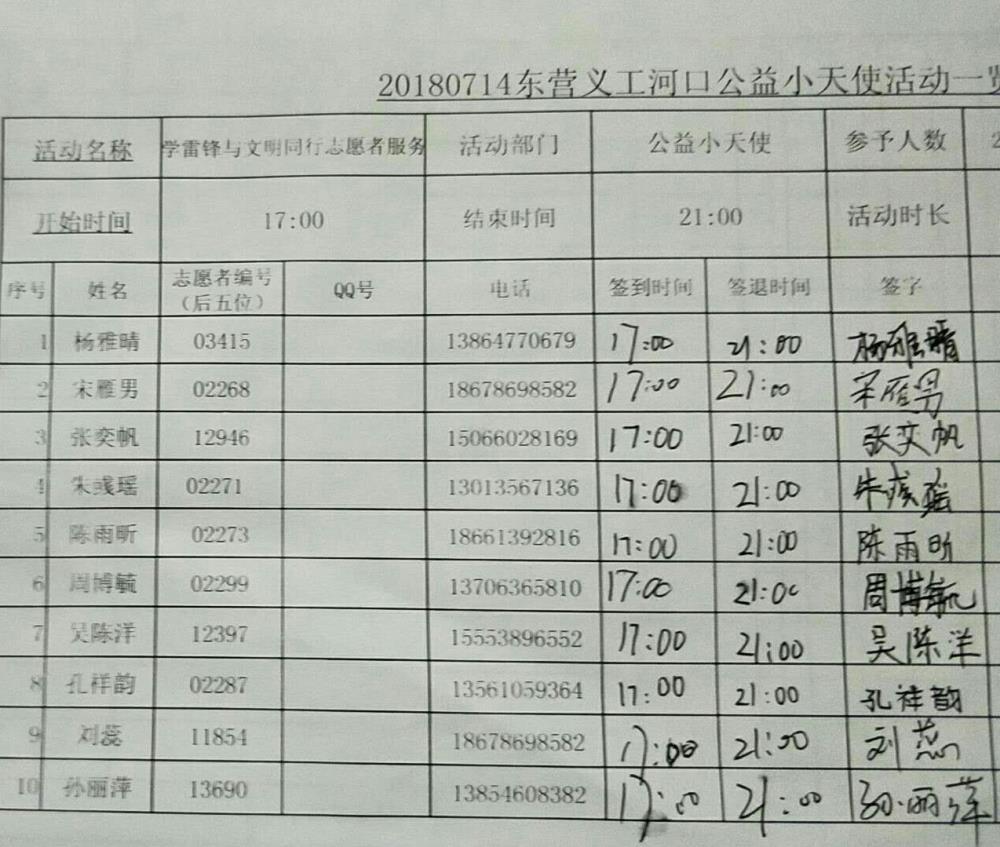 20180714东营义工河口公益小天使活动一览
活动名称 学雷锋与文明同行志愿者服务 活动部门 公益小天使 参予人数 2
开始时间 17:00 结束时间 21:00 活动时长
序号 姓名 志愿者编号（后五位） QQ号 电话 签到时间 签退时间 签字
1 杨雅晴 03415 13864770679 17:00 21:00 杨雅晴
2 宋雁男 02268 18678698582 17:00 21:00 宋雁男
3 张奕帆 12946 15066028169 17:00 21:00 张奕帆
4 朱彧瑶 02271 13013567136 17:00 21:00 朱彧瑶
5 陈雨昕 02273 18661392816 17:00 21:00 陈雨昕
6 周博毓 02299 13706365810 17:00 21:00 周博毓
7 吴陈洋 12397 15553896552 17:00 21:00 吴陈洋
8 孔祥韵 02287 13561059364 17:00 21:00 孔祥韵
9 刘蕊 11854 18678698582 17:00 21:00 刘蕊
10 孙丽萍 13690 13854608382 17:00 21:00 孙丽萍